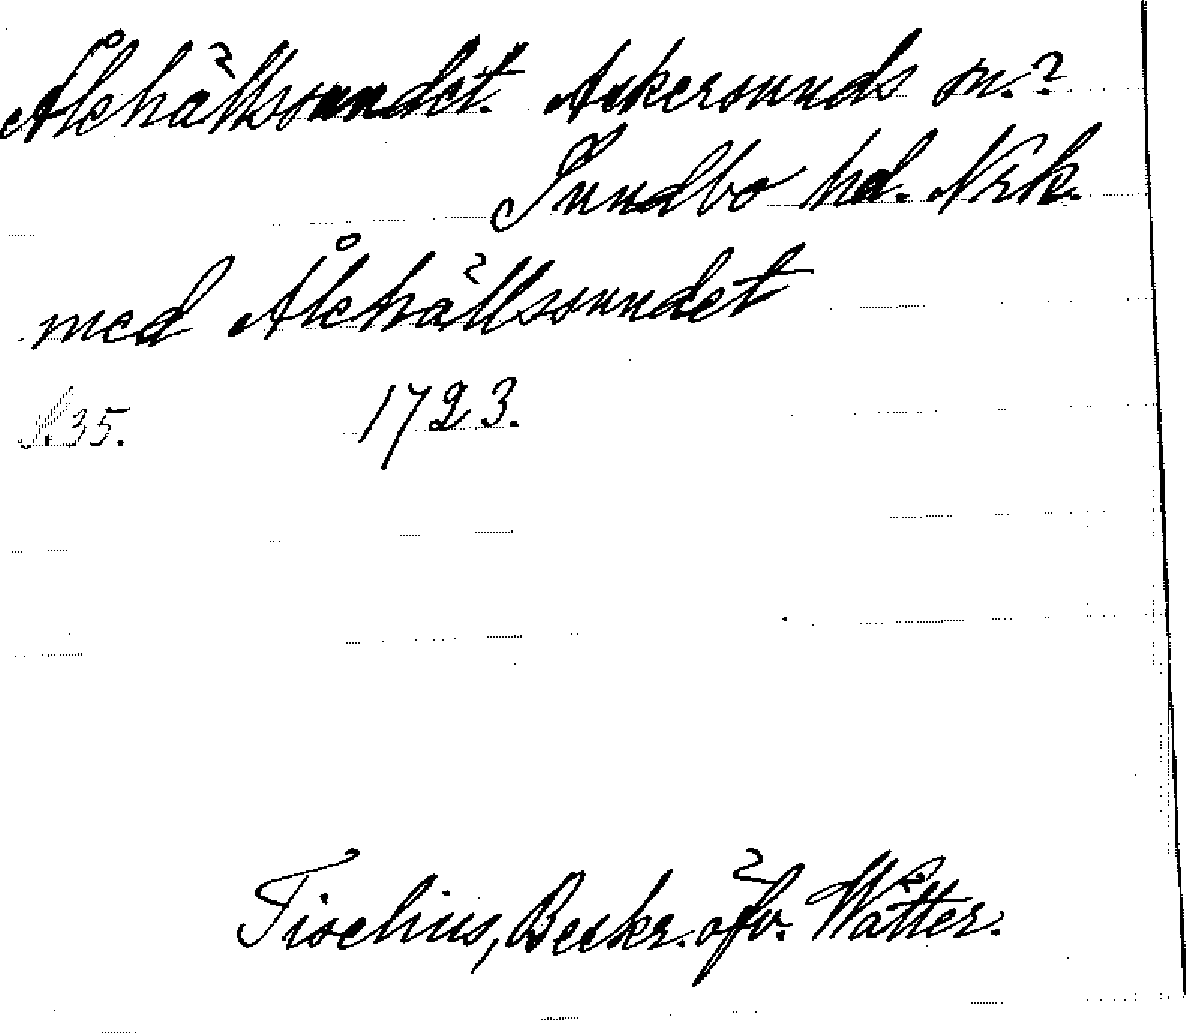 Ålehällsoundet. Askersunds sn.?
Sundbo hd. Nrk.
med Ålehällsoundet
S. 35. 1723.
Tiselius, Beskr. öfv. Wätter.